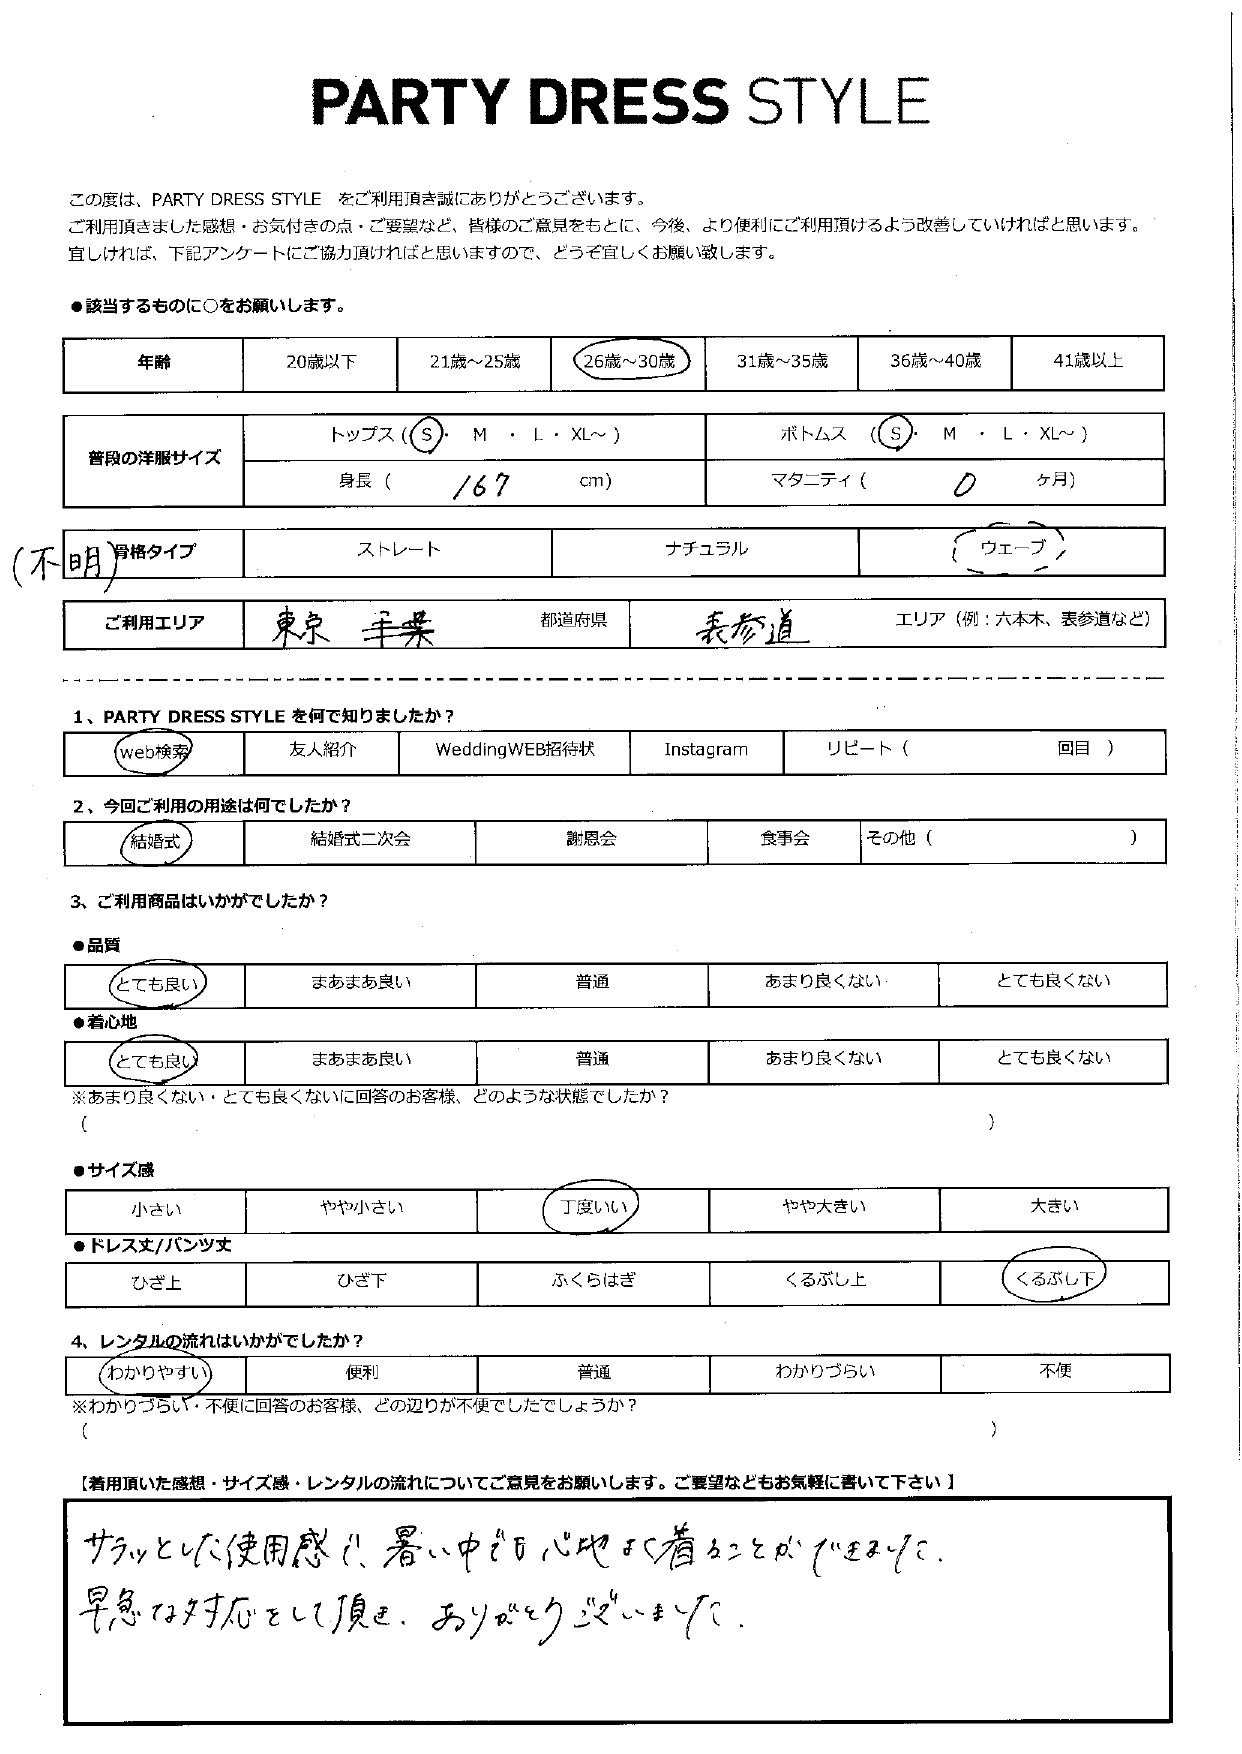 PARTY DRESS STYLE
この度は、PARTY DRESS STYLE　をご利用頂き誠にありがとうございます。
ご利用頂きました感想・お気付きの点・ご要望など、皆様のご意見をもとに、今後、より便利にご利用頂けるよう改善していければと思います。
宜しければ、下記アンケートにご協力頂ければと思いますので、どうぞ宜しくお願い致します。
●該当するものに○をお願いします。
年齢 20歳以下 21歳～25歳 26歳～30歳 31歳～35歳 36歳～40歳 41歳以上
普段の洋服サイズ トップス (S・ M ・ L・ XL～ ) ボトムス (S・ M ・ L・ XL～ )
身長 ( 167 cm) マタニティ ( 0 ヶ月)
(不明) 骨格タイプ ストレート ナチュラル ウェーブ
ご利用エリア 東京 千葉 都道府県 表参道 エリア（例：六本木、表参道など）
1、PARTY DRESS STYLE を何で知りましたか？
web検索 友人紹介 WeddingWEB招待状 Instagram リピート（ 回目 ）
2、今回ご利用の用途は何でしたか？
結婚式 結婚式二次会 謝恩会 食事会 その他（ ）
3、ご利用商品はいかがでしたか？
●品質
とても良い まあまあ良い 普通 あまり良くない とても良くない
●着心地
とても良い まあまあ良い 普通 あまり良くない とても良くない
※あまり良くない・とても良くないに回答のお客様、どのような状態でしたか？
（ ）
●サイズ感
小さい やや小さい 丁度いい やや大きい 大きい
●ドレス丈/パンツ丈
ひざ上 ひざ下 ふくらはぎ くるぶし上 くるぶし下
4、レンタルの流れはいかがでしたか？
わかりやすい 便利 普通 わかりづらい 不便
※わかりづらい・不便に回答のお客様、どの辺りが不便でしたでしょうか？
（ ）
【着用頂いた感想・サイズ感・レンタルの流れについてご意見をお願いします。ご要望などもお気軽に書いて下さい 】
サラッとした使用感で、暑い中でも心地よく着ることができました.
早急な対応をして頂き、ありがとうございました.